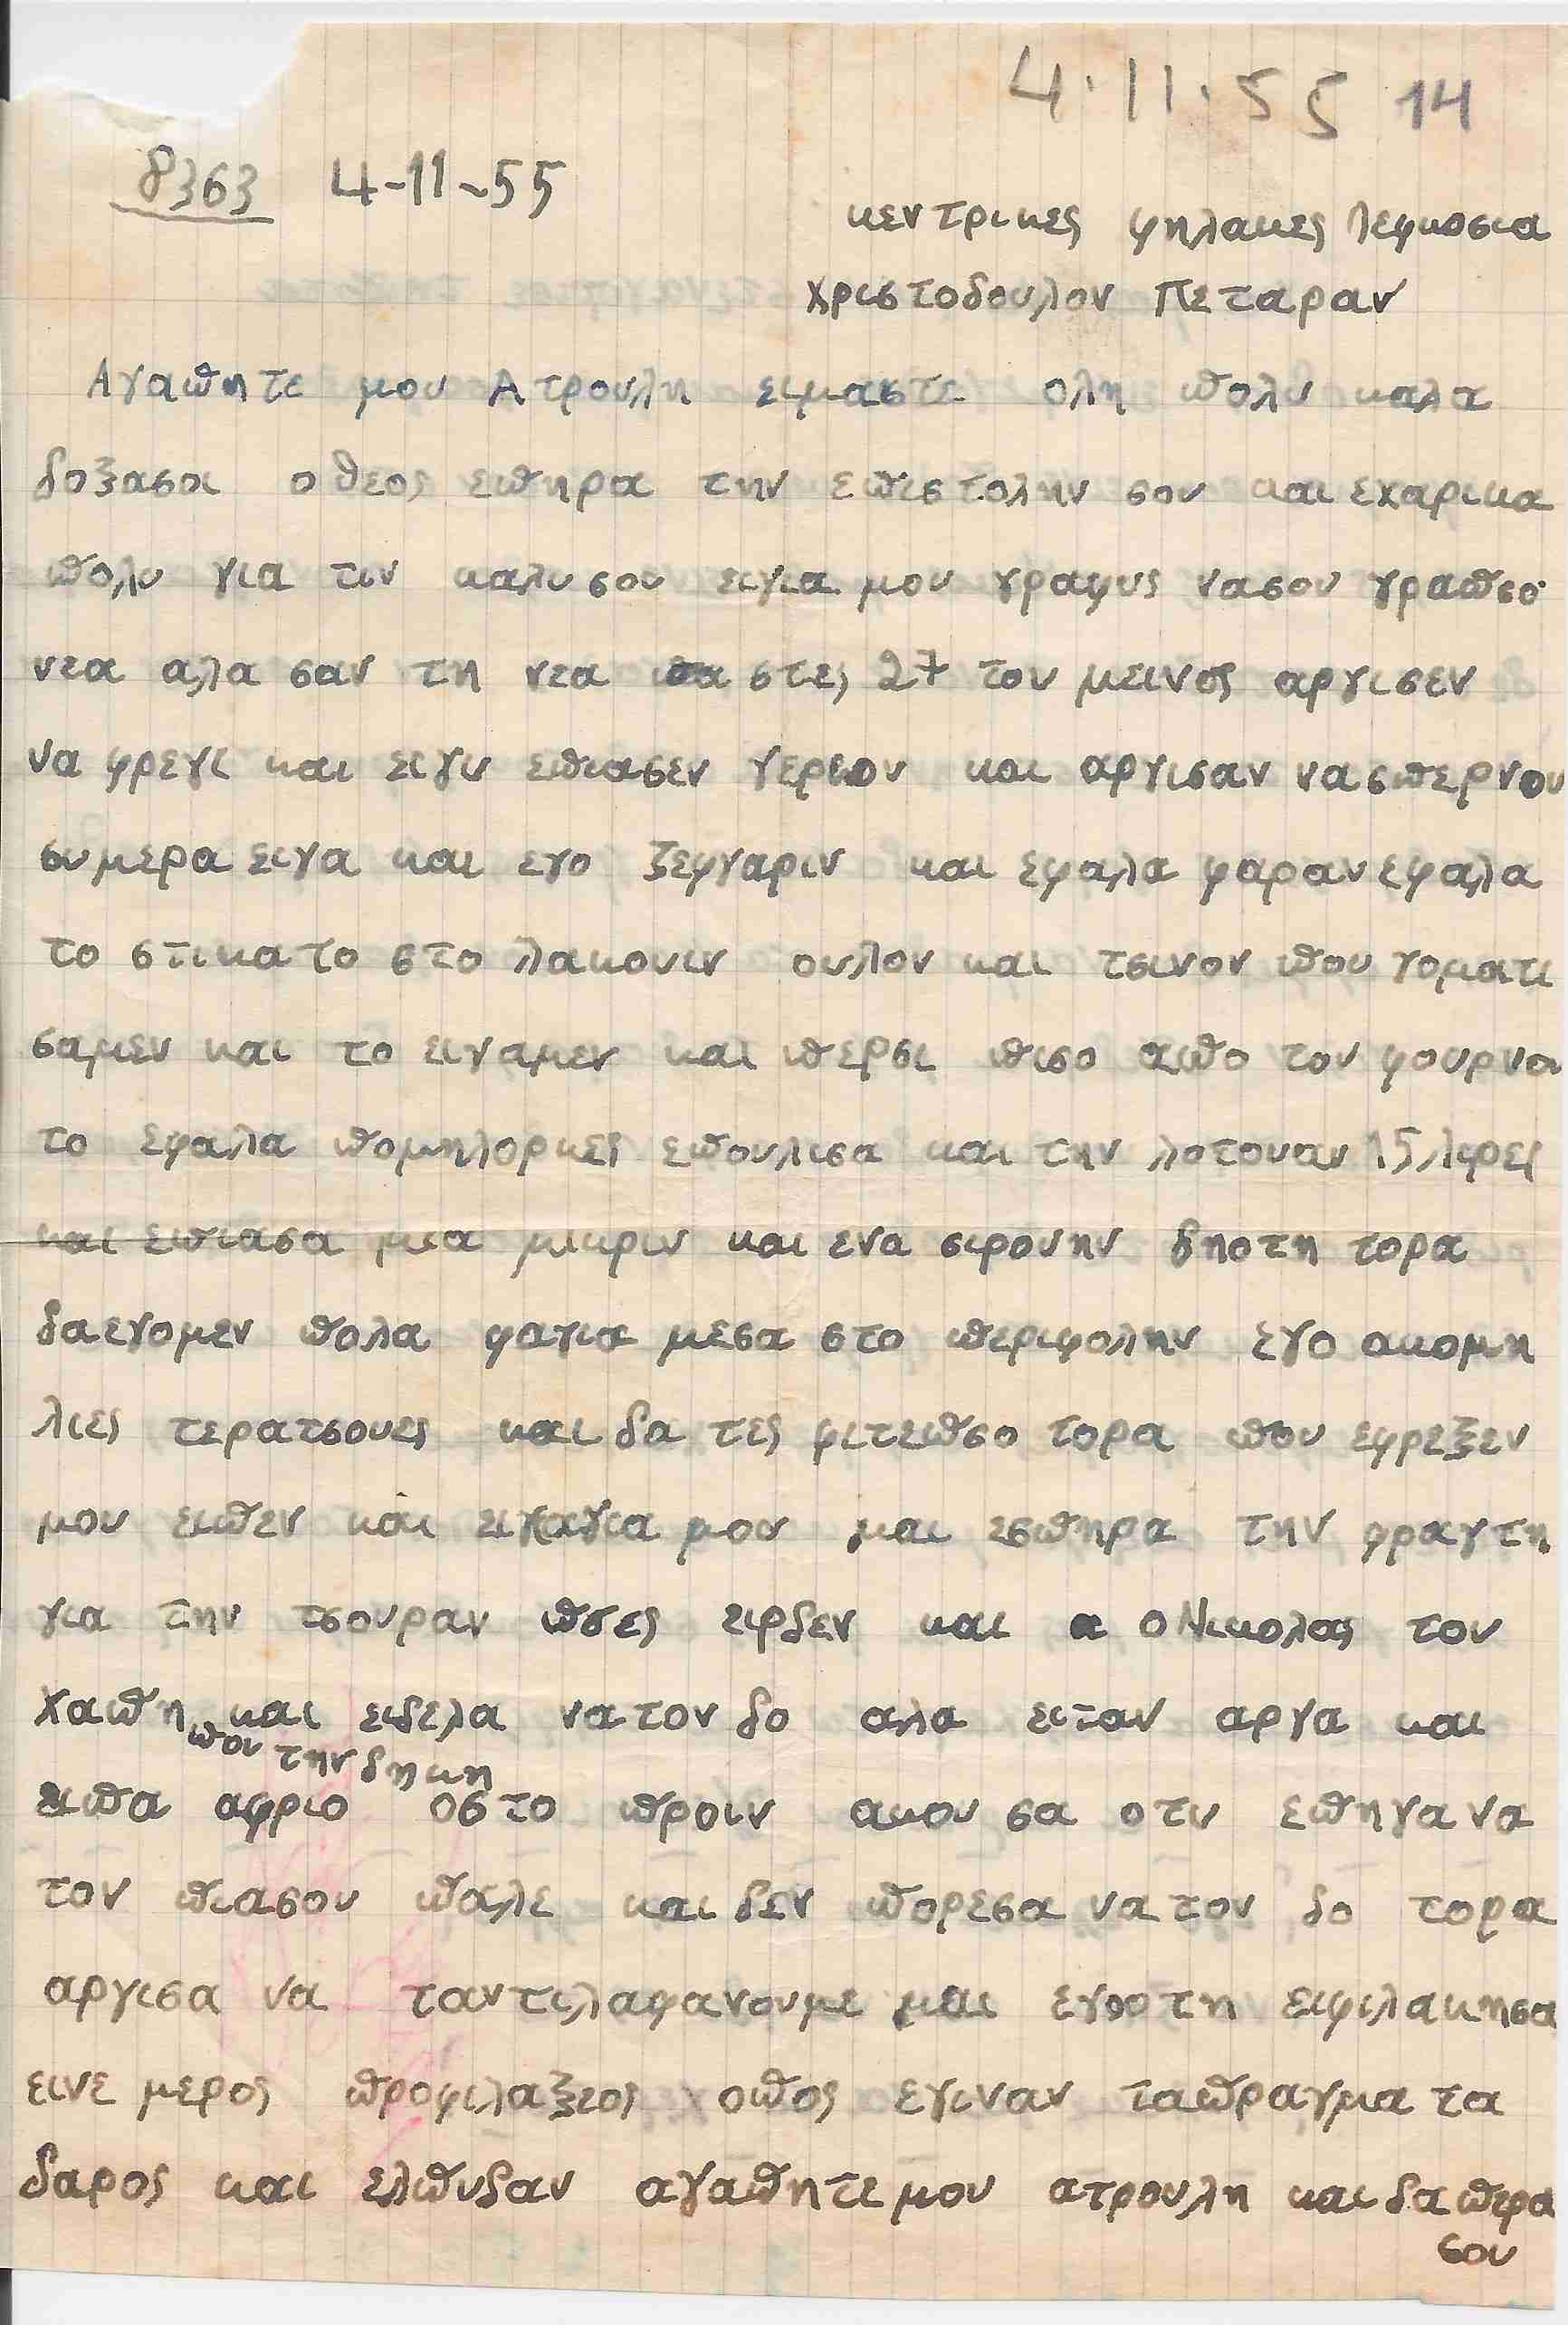 4.11.55 14
8363 4-11-55
κεντρικες φηλακες λεφκοσια
χριστοδουλον πεταραν
Αγαπητε μου Ατρουλη ειμαστε ολη πολυ καλα
δοξασοι ο θεος επηρα την επιστολην σου και εχαρικα
πολυ για τιν καλυσου ειγια μου γραφυς νασου γραπσο
νεα αλα σαν τη νεα στες 27 του μεινος αργισεν
να φρεγι και ειγυ επιασεν γερκον και αργισαν νασπερνου
συμερα ειγα και εγο ζεφγαριν και εφαλα φαραν εφαλα
το στικατο στο λακουιν ουλον και τσινον που γοματι
σαμεν και το ειναμεν και περσι πισο απο τον φουρνο
το εφαλα πομηλορκες επουλισα και την λοτουαν 15 λιρες
και επιασα μια μικριν και ενα σιρουνην δηοτη τορα
δαεγομεν πολα φαγια μεσα στο περιφολην εγο ακομη
λιες τερατσουες και δα τες φιτεπσο τορα που εφρεξεν
μου ειπεν και ειγαγια μου και εσπηρα την φραγτη
για την τσουραν πσες ειρδεν και ο Νικολας του
Χαπη και ειδελα να τον δο αλα ειταν αργα και
που την δηκη
ειπα αφριο οστο προιν ακουσα οτυ επηγα να
τον πιασου παλε και δεν πορεσα να τον δο τορα
αργισα να ταντιλαφανουμε και εγο οτη ειφιλακησα
εινε μερος προφιλαξεος οπος εγιναν ταπραγματα
δαρος και ελπυδαν αγαπητε μου ατρουλη και δα περα
σου